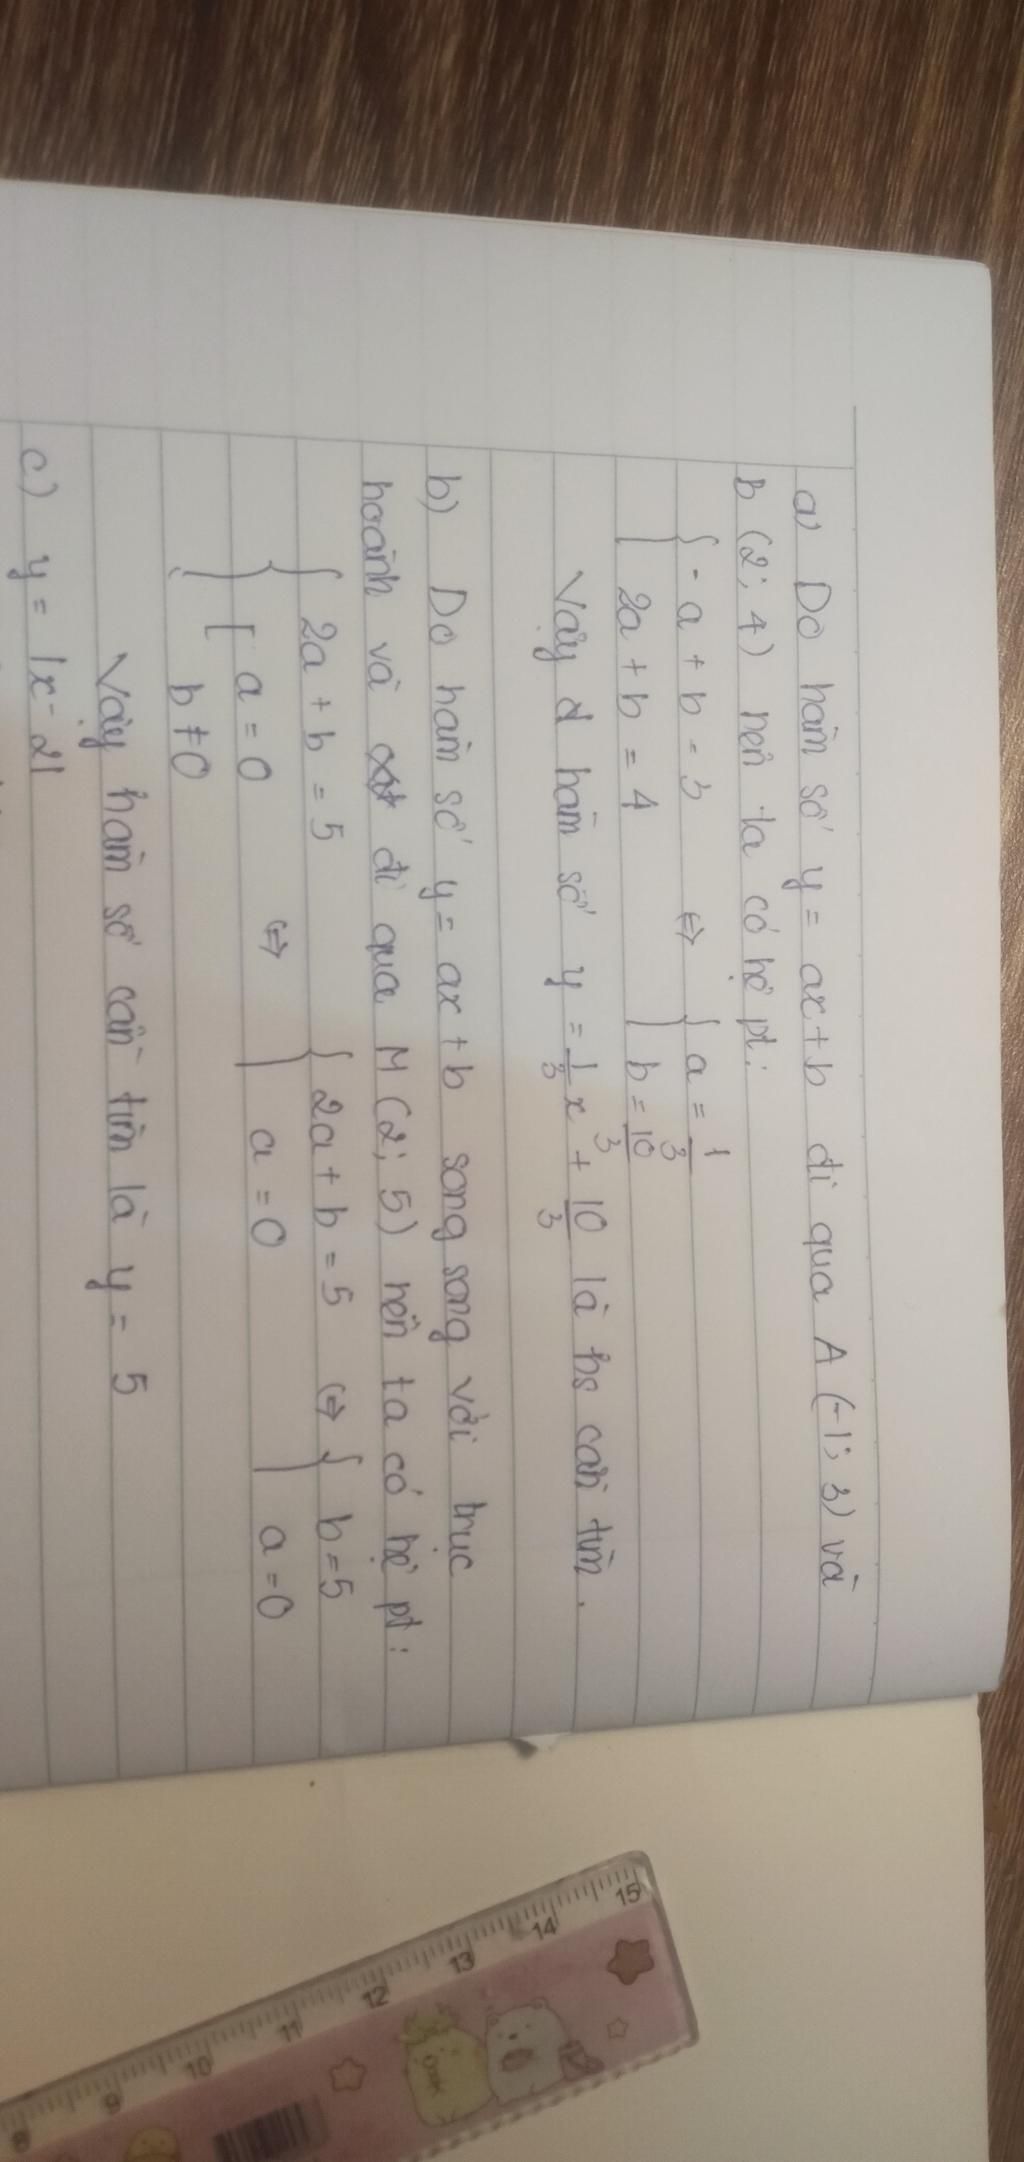 a) Do hàm số y = ax + b đi qua A (-1; 3) và
B (2; 4) nên ta có hệ pt:
{ -a + b = 3 ⇔ { a = 1/3
2a + b = 4 b = 10/3
Vậy hàm số y = 1/3 x + 10/3 là hs cần tìm.
b) Do hàm số y = ax + b song song với trục
hoành và đi qua M (2; 5) nên ta có hệ pt:
{ 2a + b = 5 ⇔ { 2a + b = 5 ⇔ { b = 5
[ a = 0 a = 0 a = 0
b ≠ 0
Vậy hàm số cần tìm là y = 5
c) y = |x - 2|
15
14
13
12
11
10
9
8